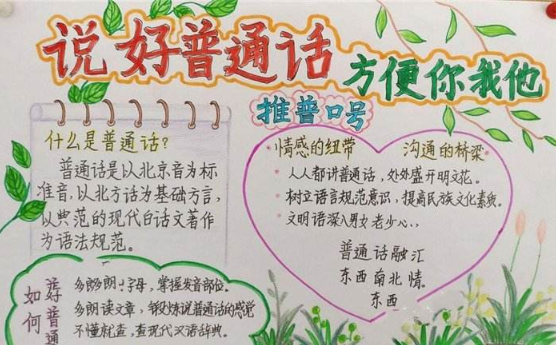 说好普通话
方便你我他
推普口号
什么是普通话?
普通话是以北京音为标
准音,以北方话为基础方言,
以典范的现代白话文著作
为语法规范。
情感的纽带 沟通的桥梁
人人都讲普通话,处处盛开明文花。
树立语言规范意识,提高民族文化素质。
文明语深入男女老少心...
普通话融汇
东西南北情。
东西
如何
好普通
多朗朗字母,掌握发音部位。
多朗读文章,锻炼说普通话的感觉
不懂就查,查现代汉语辞典。